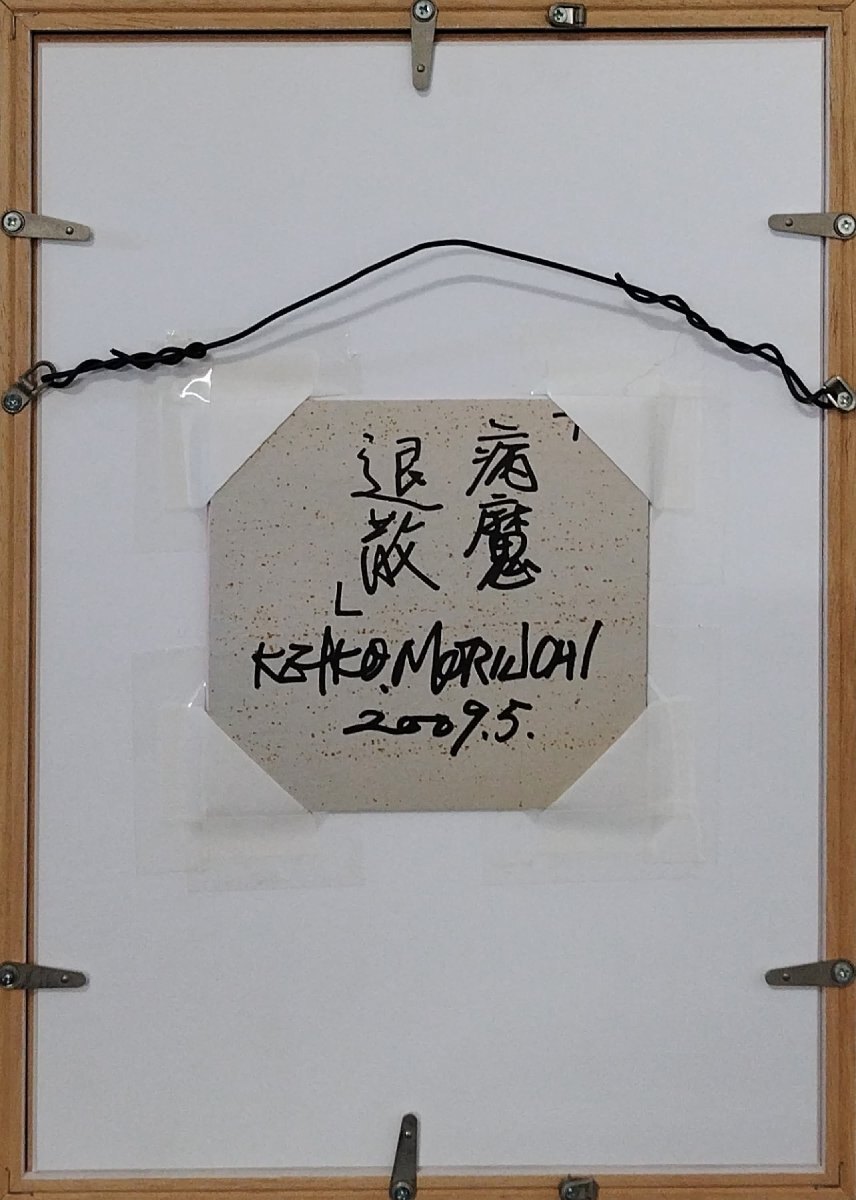 「病魔
退散」
KEIKO.MORIUCHI
2009.5.